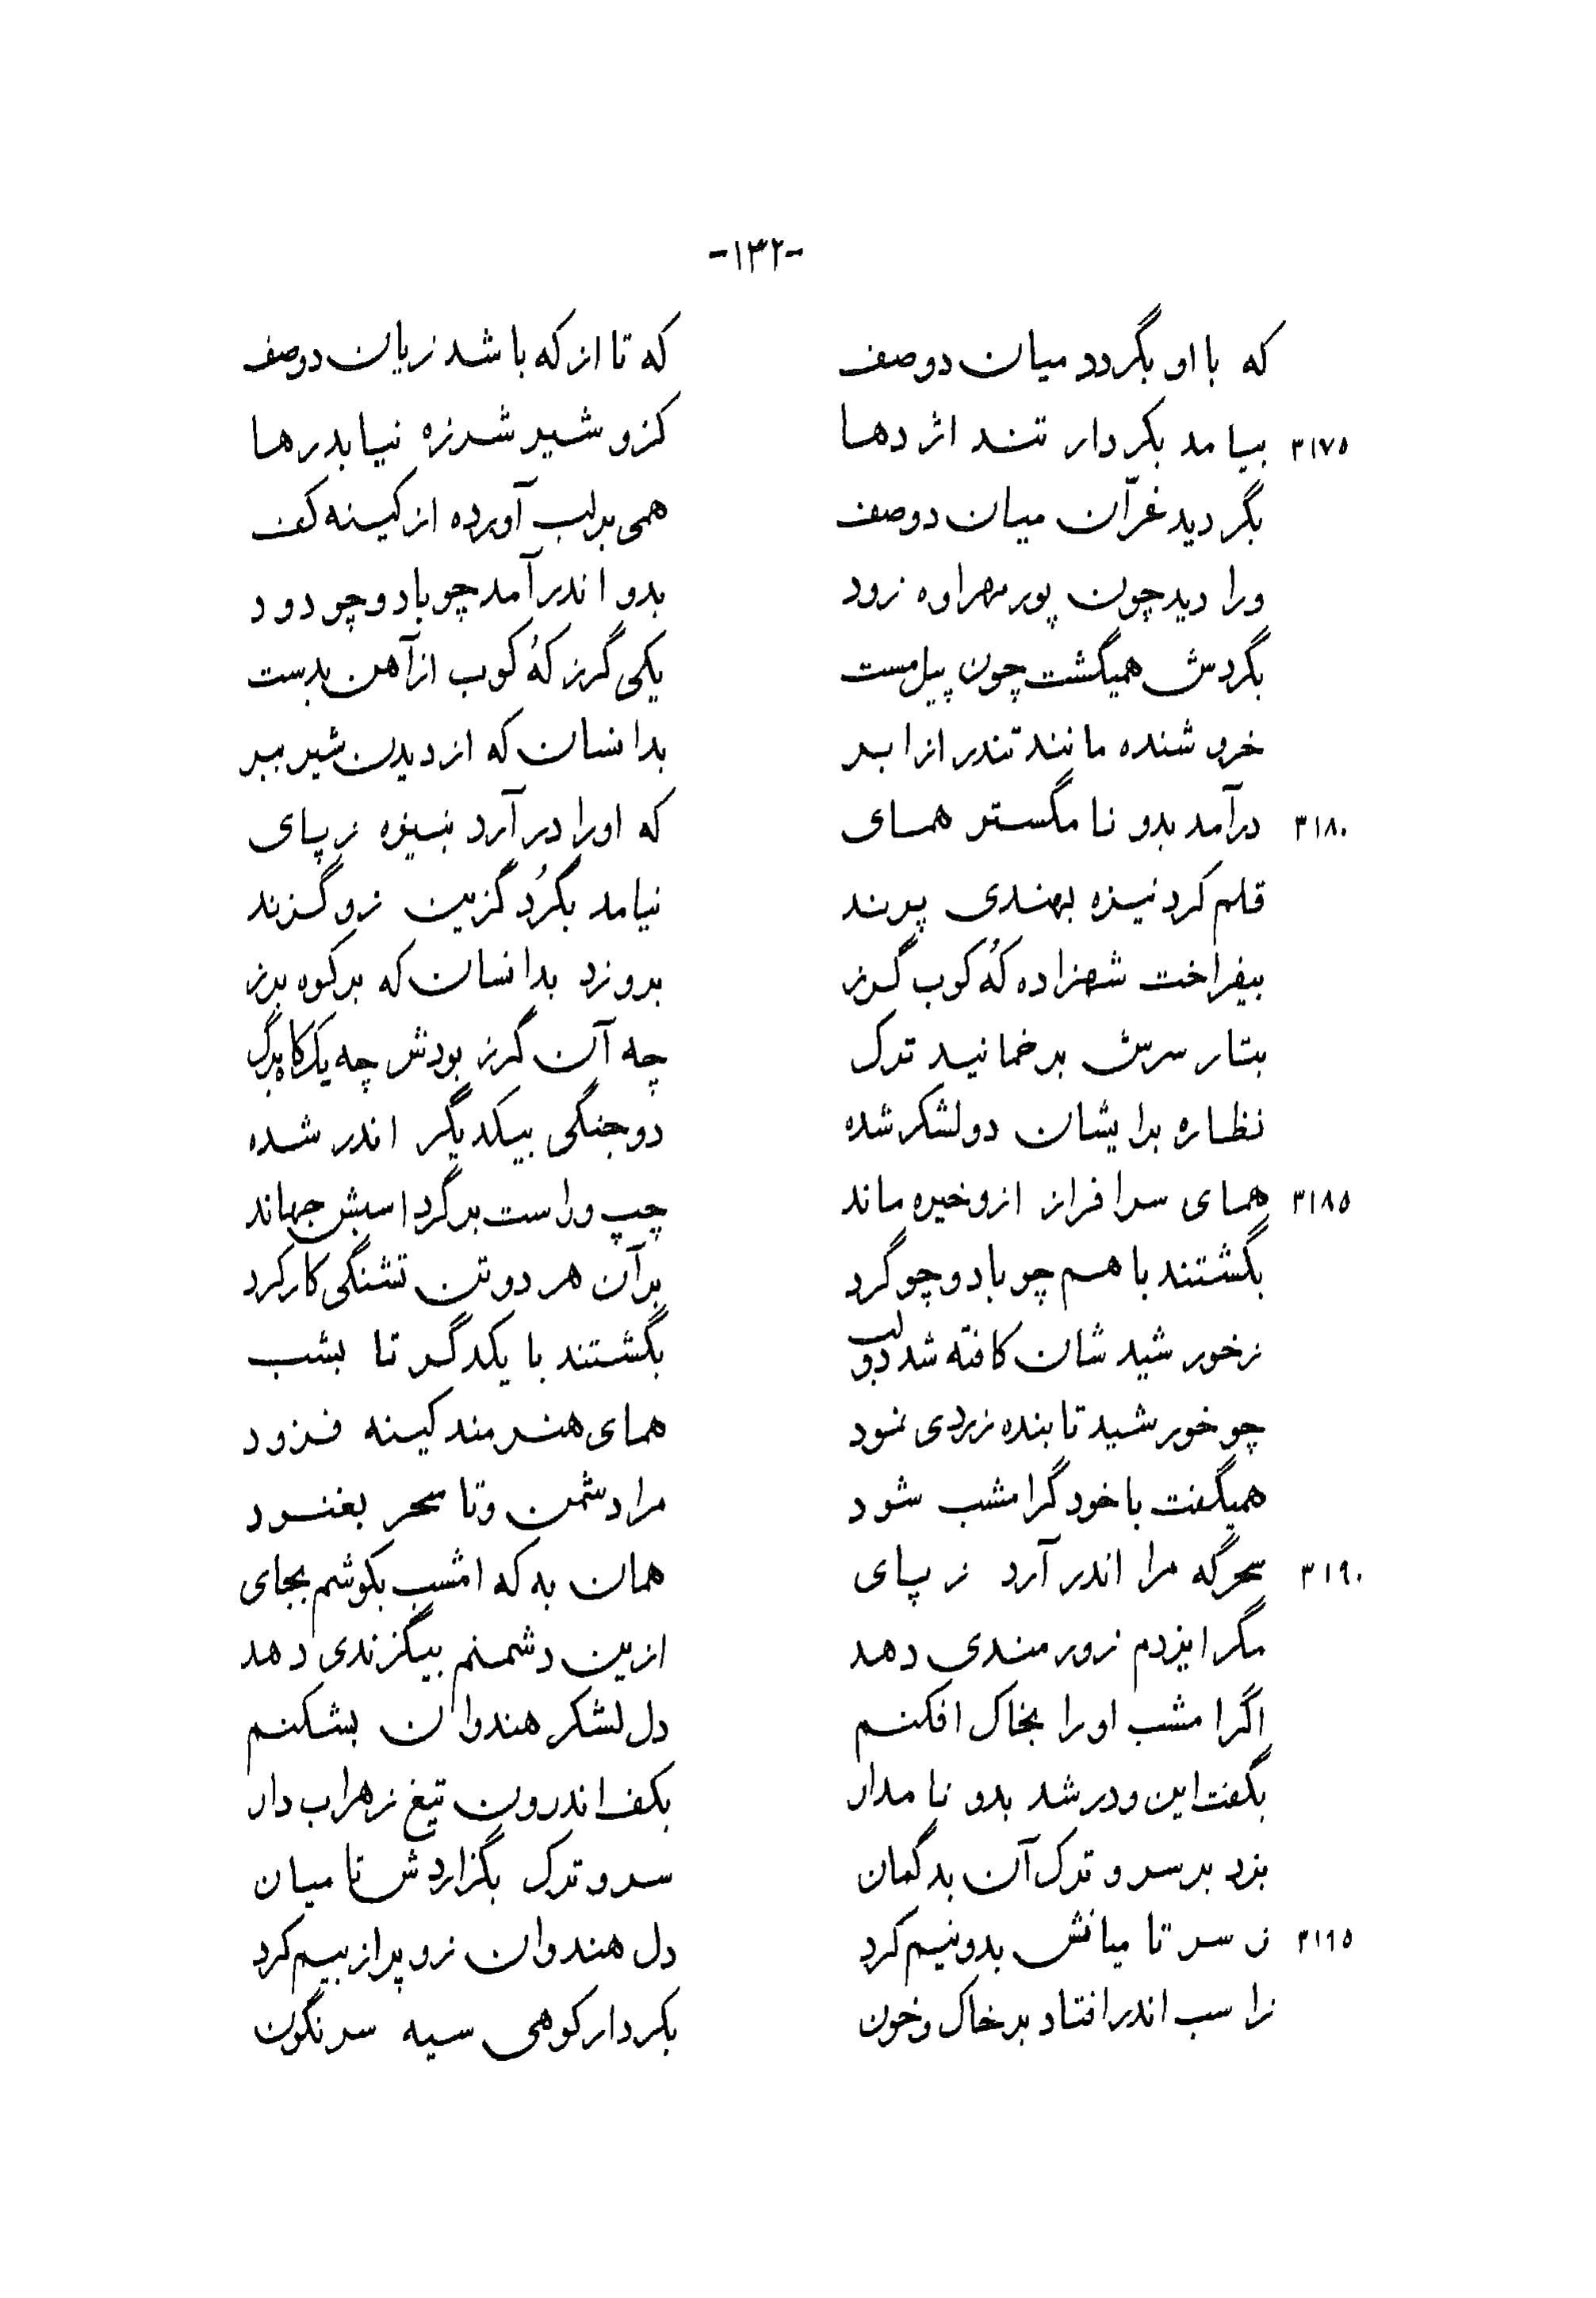 -۱۳۲-
که با او بگردد میان دو صف که تا از که باشد زیان دو صف
۳۱۷۵ بیامد بکردار تند اژدها کزو شیر شرزه نیابد رها
بگردید غرّان میان دو صف همی بر لب آورده از کینه کف
ورا دید چون پور مهراوه زود بدو اندر آمد چو باد و چو دود
بگردش همیگشت چون پیل مست یکی گرز کُه کوب از آهن بدست
خروشنده مانند تندر از ابر بدانسان که از دیدن شیر ببر
۳۱۸۰ درآمد بدو نامگستر همای که او را درآرد بنیزه ز پای
قلم کرد نیزه بهندی پرند نیامد بگُرد گزین زو گزند
بیفراخت شهزاده کُه کوب گرز برو زد بدانسان که بر کوه برز
بتار سرش بر خمانید ترک چه آن گرز بودش چه یک کاه برگ
نظاره برایشان دو لشکر شده دو جنگی بیکدیگر اندر شده
۳۱۸۵ همای سرافراز ازو خیره ماند چپ و راست بر گرد اسبش جهاند
بگشتند با هم چو باد و چو گرد بر آن هر دو تن تشنگی کار کرد
ز خورشید شان کافته شد دو لب بگشتند با یکدگر تا بشب
چو خورشید تابنده زردی نمود همای هنرمند کینه فزود
همیگفت با خود گر امشب شود مرا دشمن و تا سحر بغنود
۳۱۹۰ سحرگه مرا اندر آرد ز پای همان به که امشب بکوشم بجای
مگر ایزدم زورمندی دهد ازین دشمنم بیگزندی دهد
اگر امشب او را بخاک افکنم دل لشکر هندوان بشکنم
بگفت این و در شد بدو نامدار بکف اندرون تیغ زهراب دار
بزد بر سر و ترک آن بدگمان سر و ترک بگزاردش تا میان
۳۱۹۵ ز سر تا میانش بدو نیم کرد دل هندوان زو پر از بیم کرد
ز اسب اندر افتاد بر خاک و خون بکردار کوهی سیه سرنگون